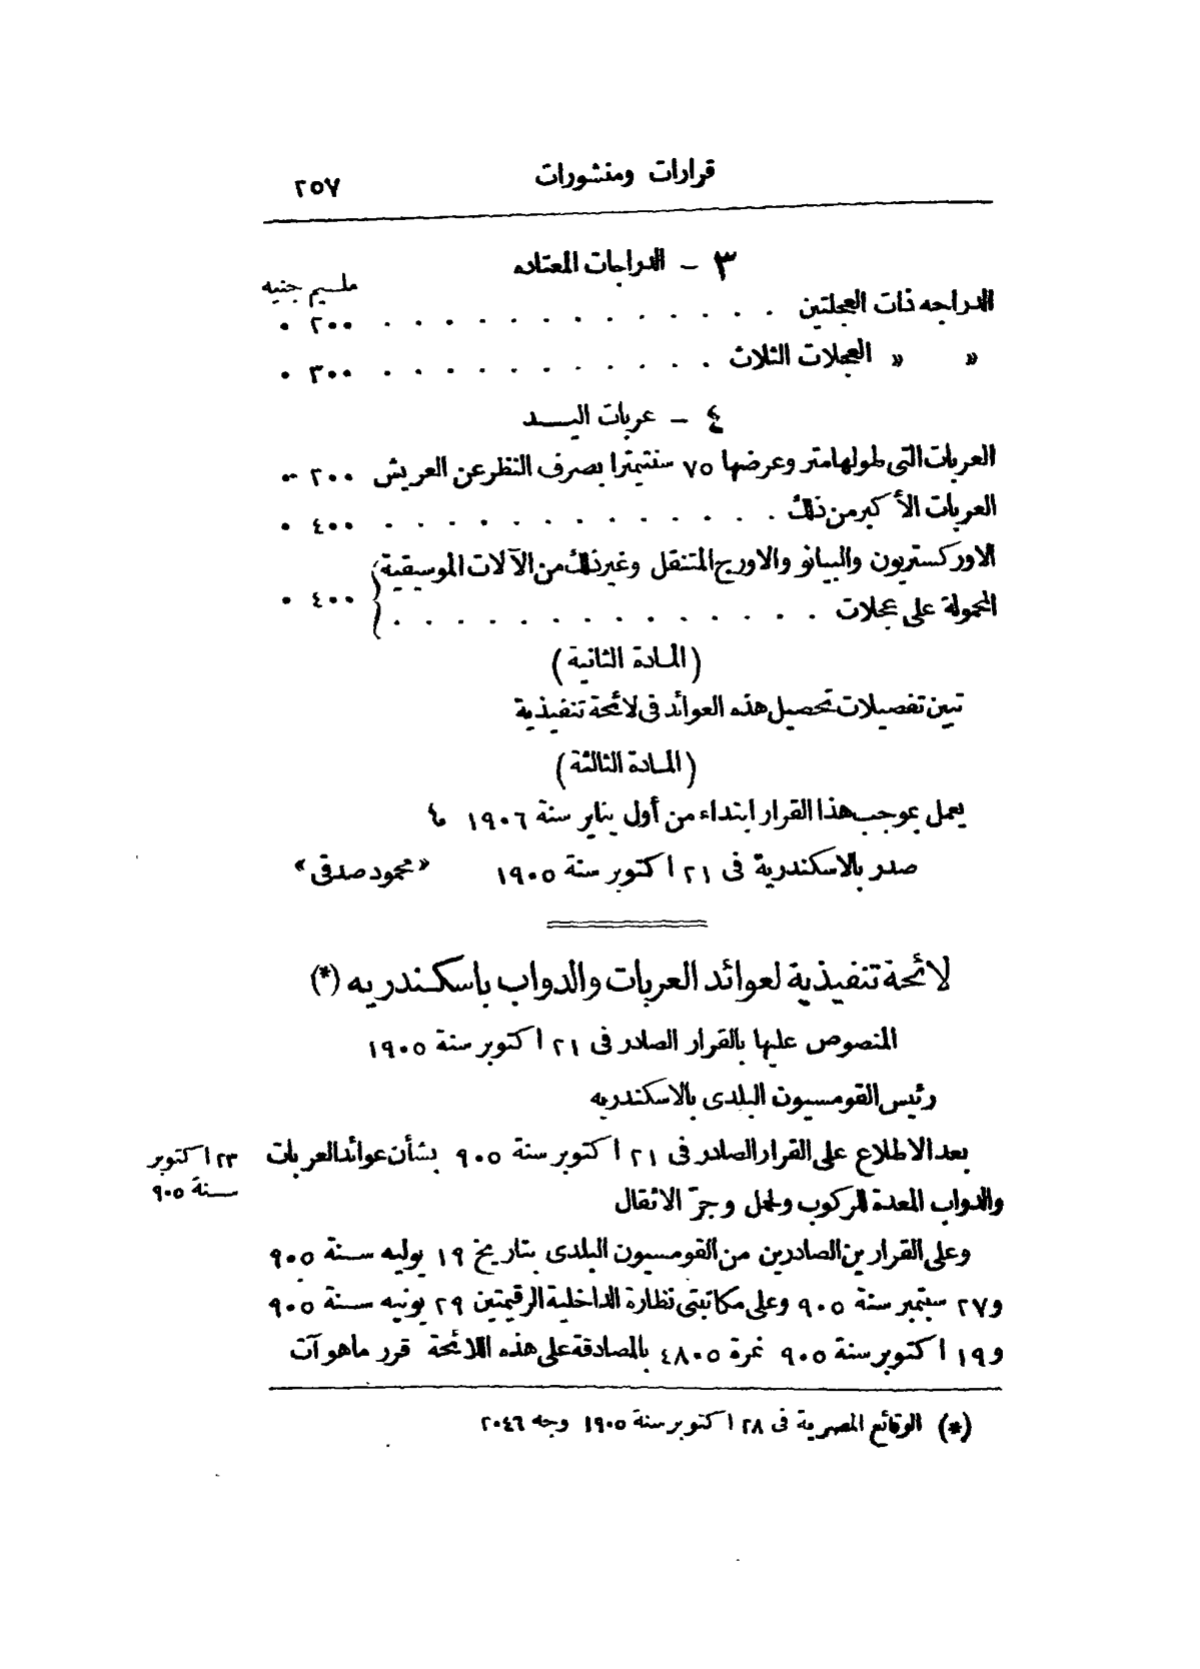 قرارات ومنشورات ٢٥٧
٣ - الدراجات المعتاده
مليم جنيه
الدراجه ذات العجلتين . . . . . . . . . . . . . ٢٠٠ ٠
» » العجلات الثلاث . . . . . . . . . . . ٣٠٠ ٠
٤ - عربات اليــد
العربات التى طولها متر وعرضها ٧٥ سنتيمترا بصرف النظر عن العريش ٢٠٠ ٠
العربات الأكبر من ذلك . . . . . . . . . . . . . ٤٠٠ ٠
الاوركستريون والبيانو والاورج المتنقل وغير ذلك من الآلات الموسيقية
المحمولة على عجلات . . . . . . . . . . . . . . ٤٠٠ ٠
(المادة الثانية)
تبين تفصيلات تحصيل هذه العوائد فى لائحة تنفيذية
(المادة الثالثة)
يعمل بموجب هذا القرار ابتداء من أول يناير سنة ١٩٠٦
صدر بالاسكندرية فى ٢١ اكتوبر سنة ١٩٠٥ «محمود صدقى»
لائحة تنفيذية لعوائد العربات والدواب باسكندريه (*)
المنصوص عليها بالقرار الصادر فى ٢١ اكتوبر سنة ١٩٠٥
رئيس القومسيون البلدى بالاسكندريه
بعد الاطلاع على القرار الصادر فى ٢١ اكتوبر سنة ٩٠٥ بشأن عوائد العربات
٢٣ اكتوبر
سنة ٩٠٥
والدواب المعدة للركوب ولحمل وجرّ الاثقال
وعلى القرارين الصادرين من القومسيون البلدى بتاريخ ١٩ يوليه سنة ٩٠٥
و٢٧ سبتمبر سنة ٩٠٥ وعلى مكاتبتى نظارة الداخلية الرقيمتين ٢٩ يونيه سنة ٩٠٥
و١٩ اكتوبر سنة ٩٠٥ نمرة ٤٨٠٥ بالمصادقة على هذه اللائحة قرر ما هو آت
(*) الوقائع المصرية فى ٢٨ اكتوبر سنة ١٩٠٥ وجه ٢٠٤٦